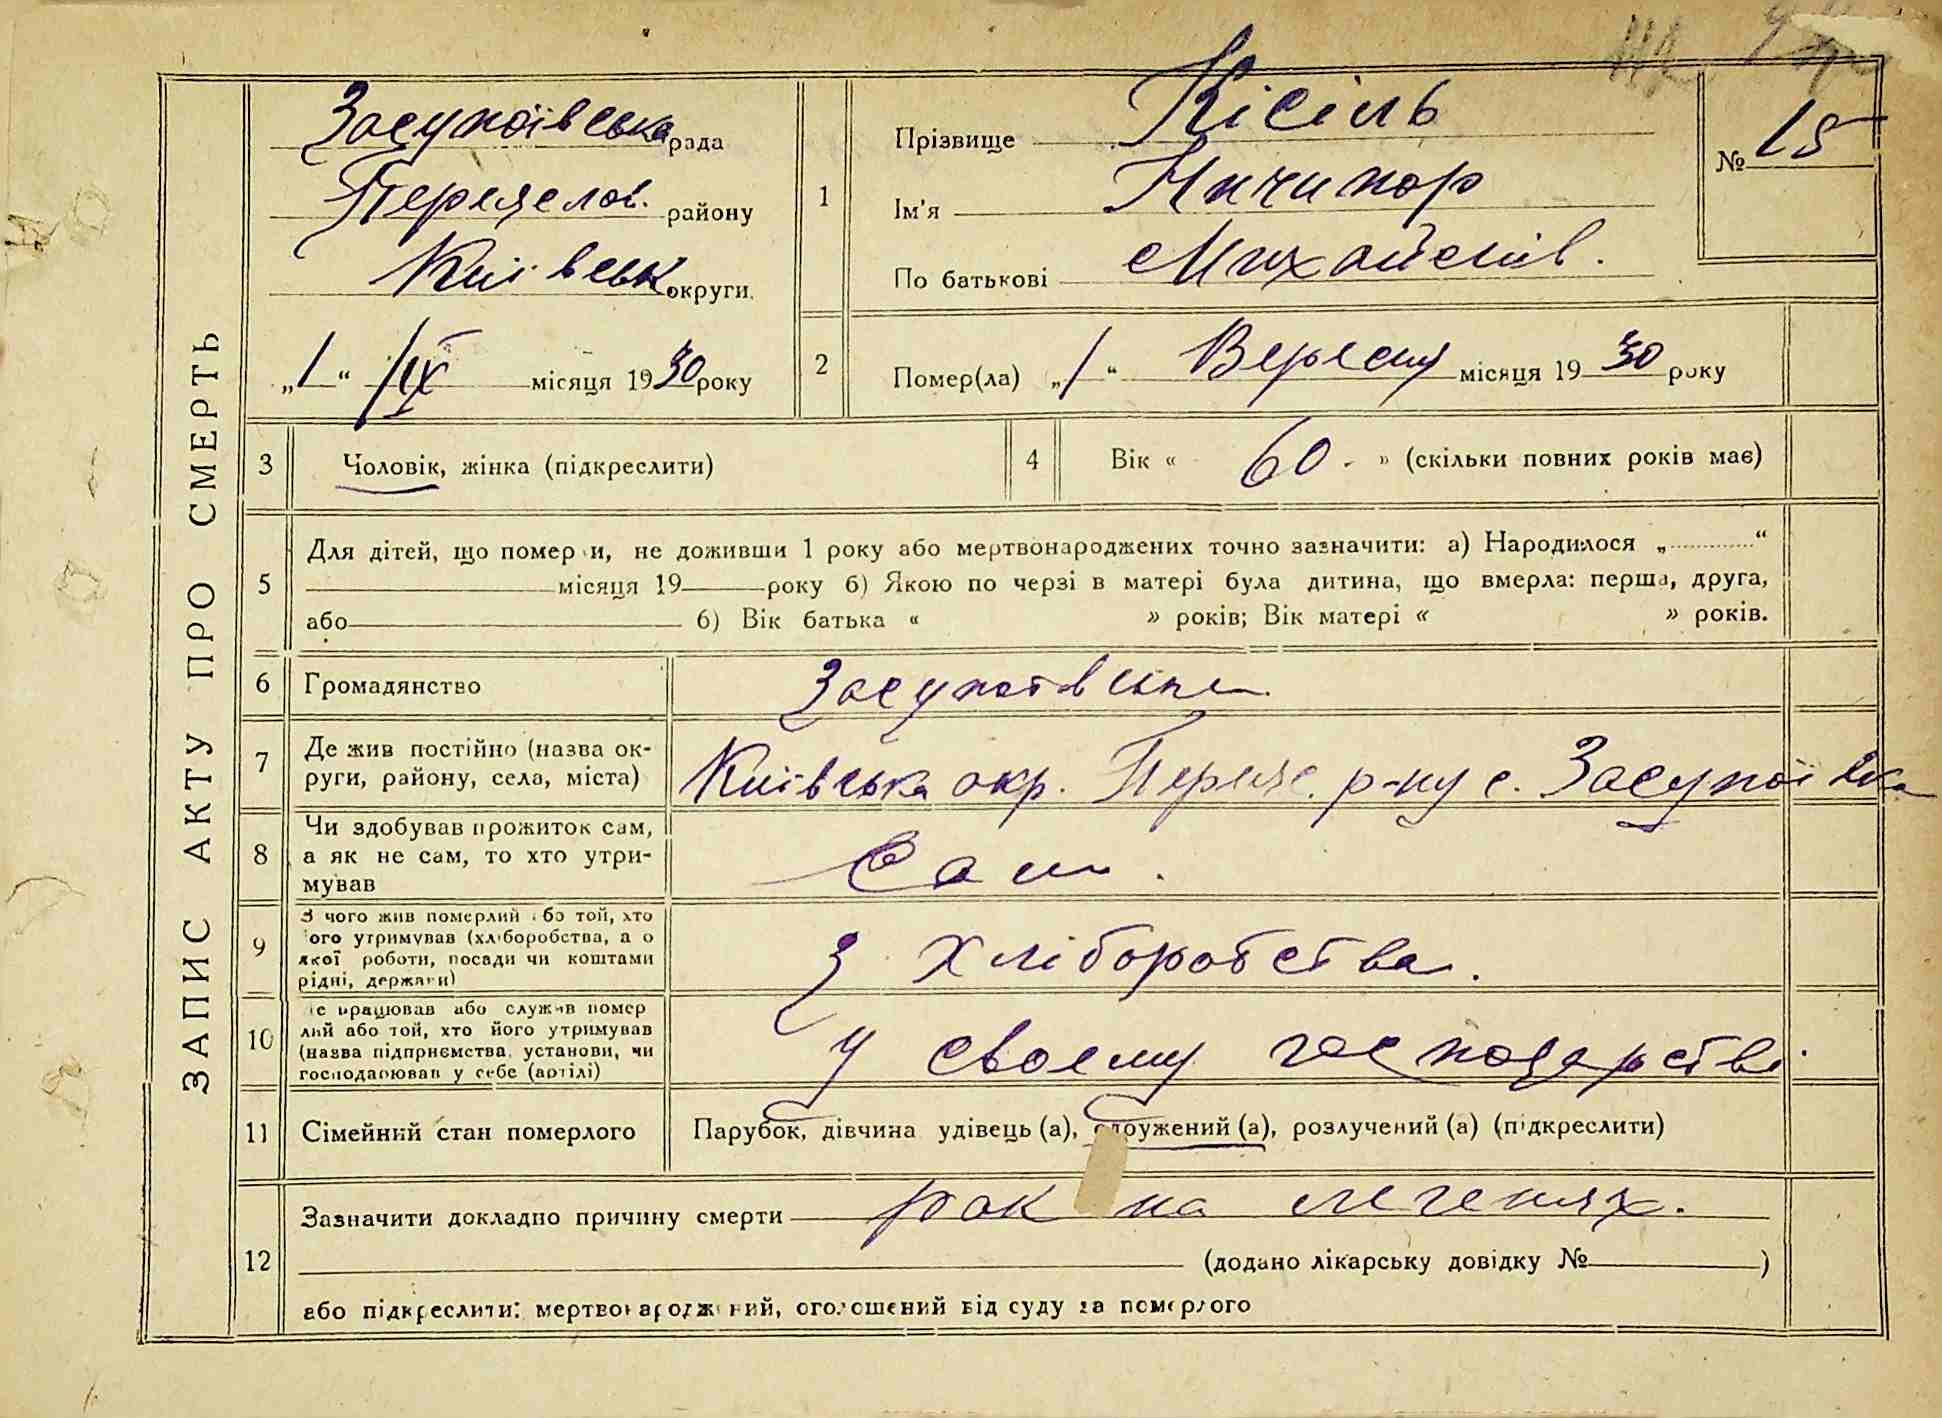 ЗАПИС АКТУ ПРО СМЕРТЬ
Засупоївська рада
Переяслов. району
Київськ округи.
„1“ /IX місяця 1930 року
1
Прізвище Кісіль
Ім'я Ничипор
По батькові Михайлів.
№ 15
2
Помер(ла) „1“ Вересня місяця 1930 року
3
Чоловік, жінка (підкреслити)
4
Вік « 60 » (скільки повних років має)
5
Для дітей, що померли, не доживши 1 року або мертвонароджених точно зазначити: а) Народилося „ “
місяця 19 року б) Якою по черзі в матері була дитина, що вмерла: перша, друга,
або б) Вік батька « » років; Вік матері « » років.
6
Громадянство
7
Де жив постійно (назва ок-
руги, району, села, міста)
Київська окр. Переяс. р-ну с. Засупоївка
8
Чи здобував прожиток сам,
а як не сам, то хто утри-
мував
Сам.
9
З чого жив померлий або той, хто
його утримував (хліборобства, а о
якої роботи, посади чи коштами
рідні, держави)
З хліборобства.
10
Де працював або служив помер
лий або той, хто його утримував
(назва підприємства, установи, чи
господарював у себе (артілі)
У своему господарстві
11
Сімейний стан померлого
Парубок, дівчина удівець (а), одружений (а), розлучений (а) (підкреслити)
12
Зазначити докладно причину смерти рак на легенях.
(додано лікарську довідку № )
або підкреслити: мертвонароджений, оголошений від суду за померлого